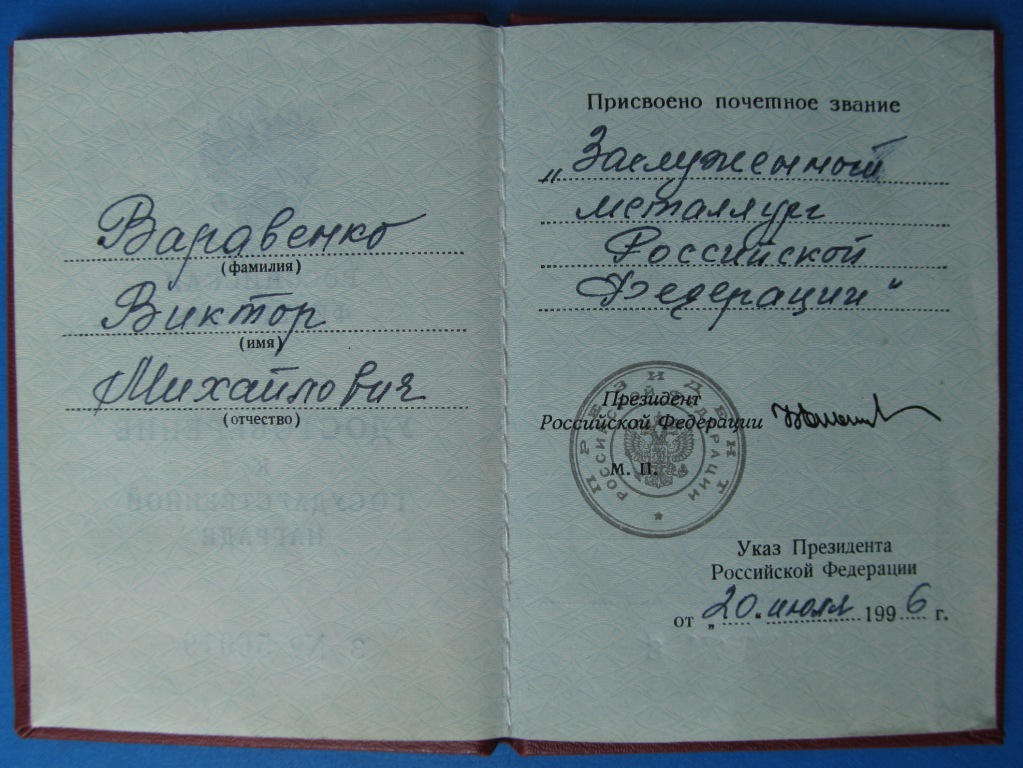 Варавенко
(фамилия)
Виктор
(имя)
Михайлович
(отчество)
Присвоено почетное звание
„Заслуженный
металлург
Российской
Федерации“
ПРЕЗИДЕНТ
РОССИЙСКОЙ ФЕДЕРАЦИИ
Президент
Российской Федерации
М. П.
Указ Президента
Российской Федерации
от „20. июля 1996 г.